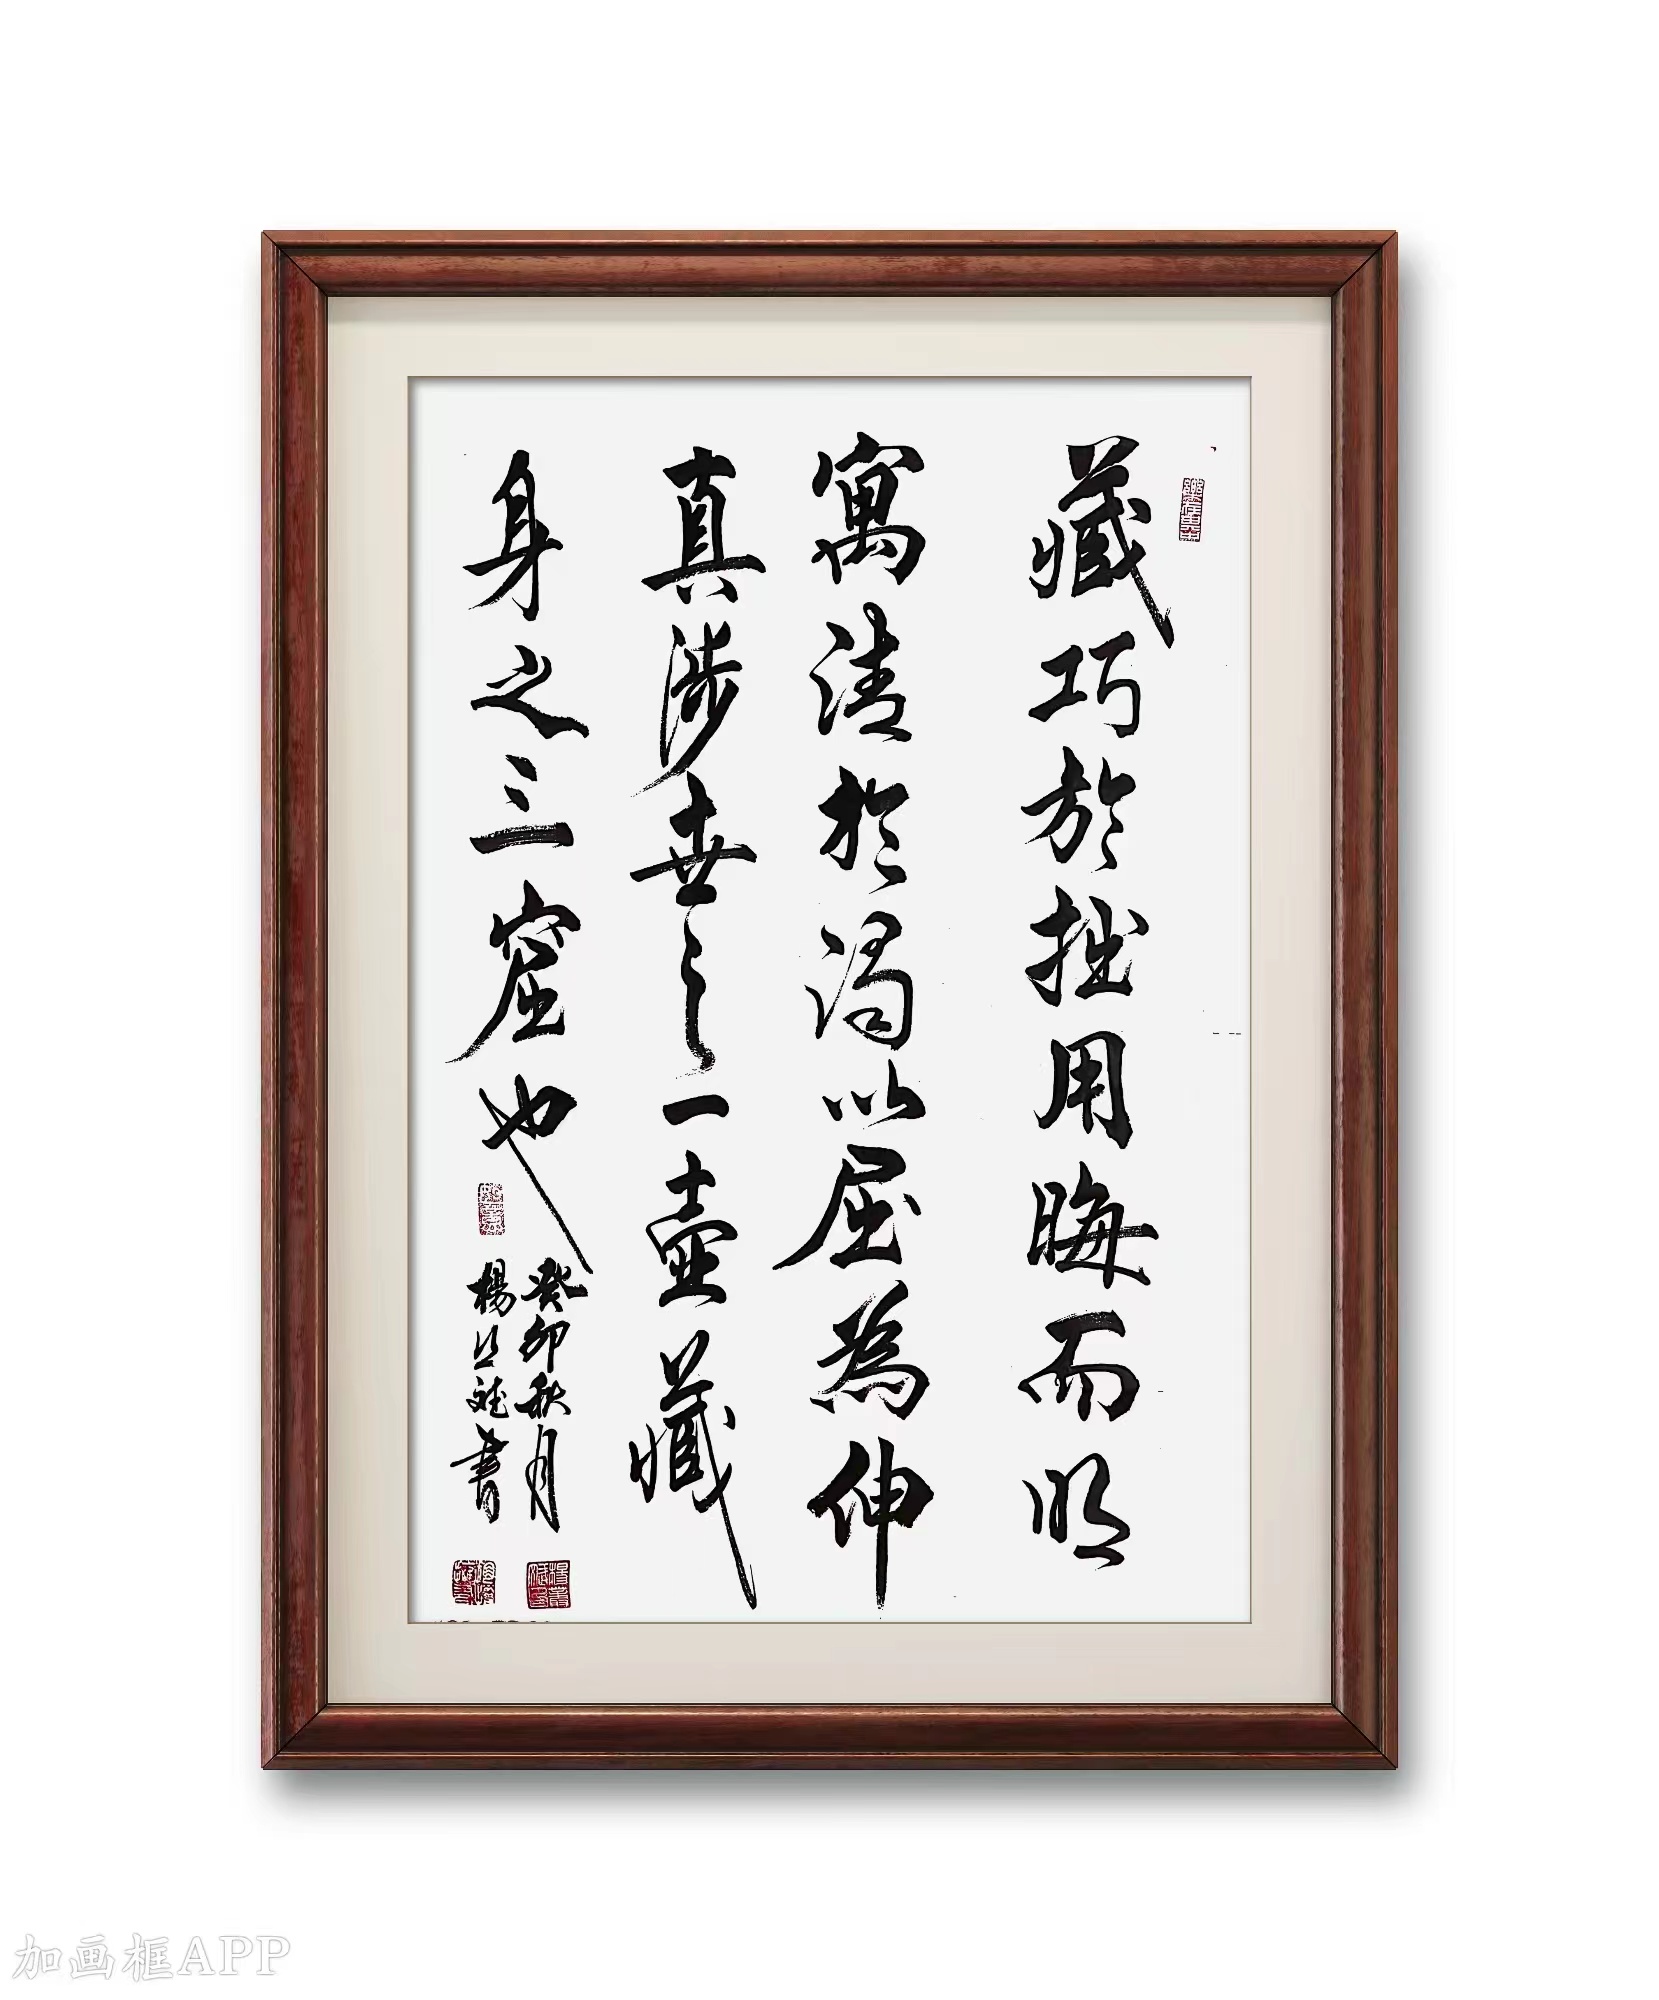 藏巧於拙用晦而明
寓清於濁以屈為伸
真涉世之一壺藏
身之三窟也
癸卯秋月
楊斌書
加画框APP